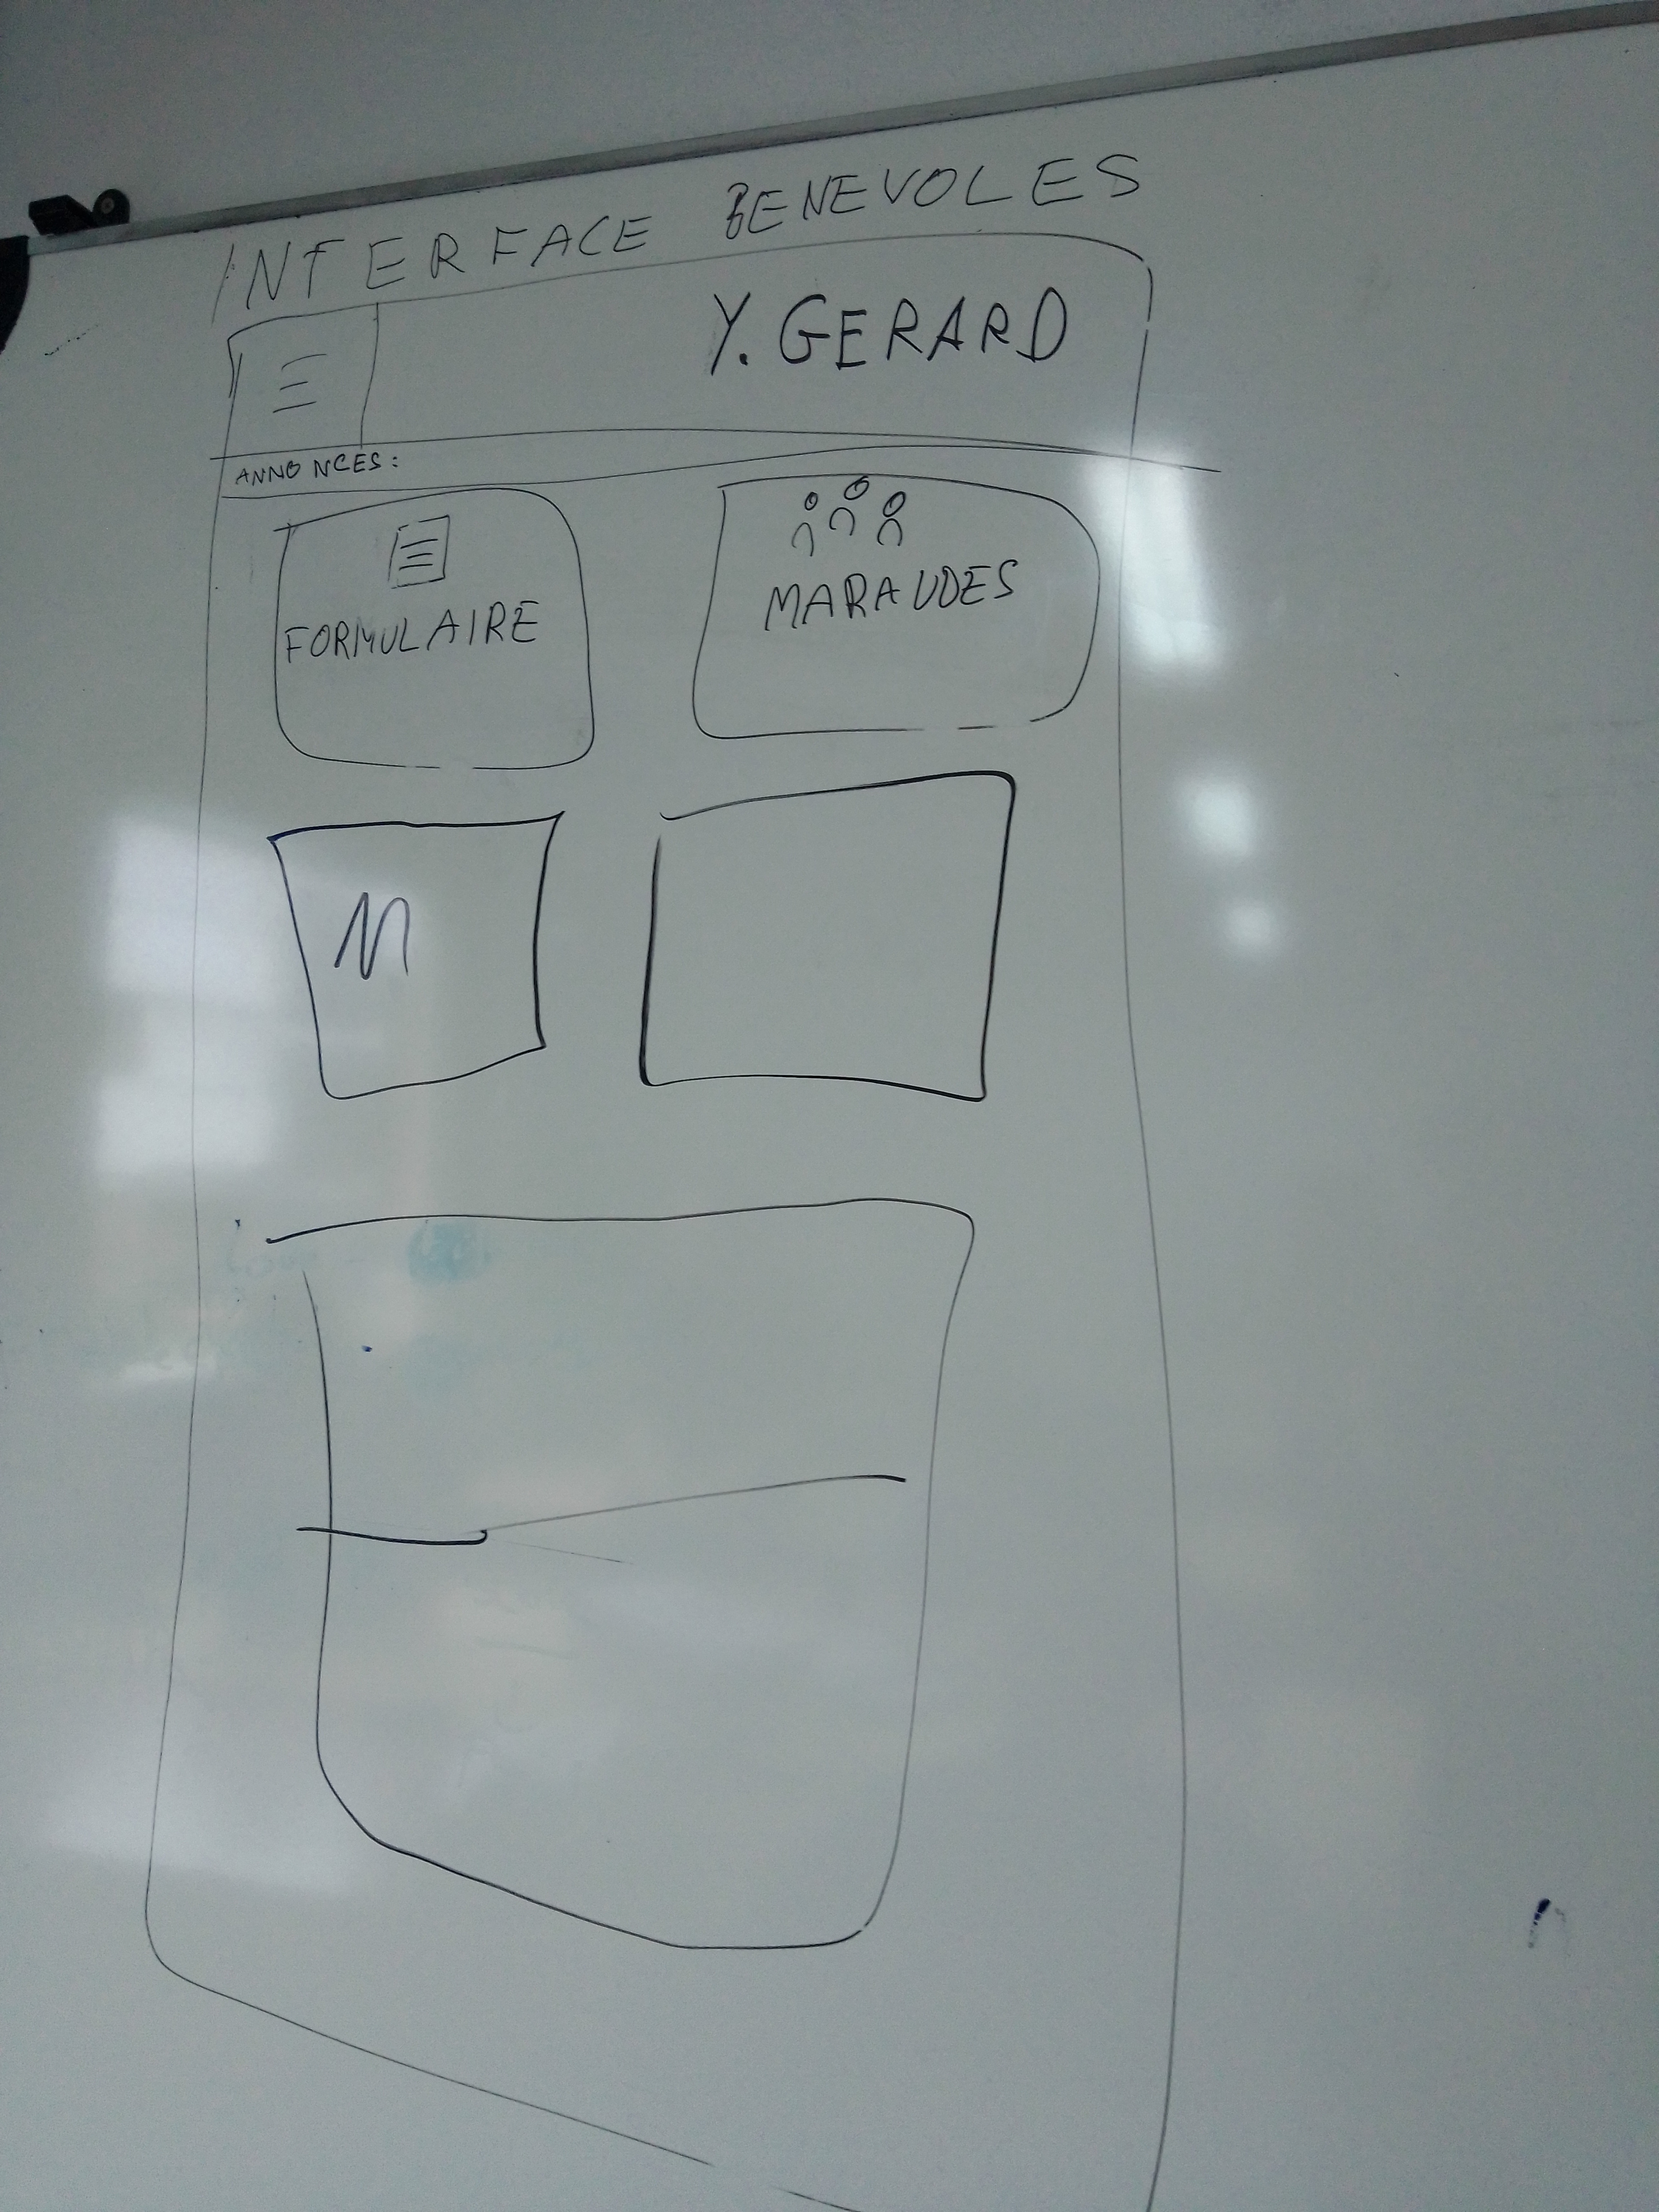 INTERFACE BENEVOLES
Y. GERARD
ANNONCES:
FORMULAIRE
MARAUDES
M